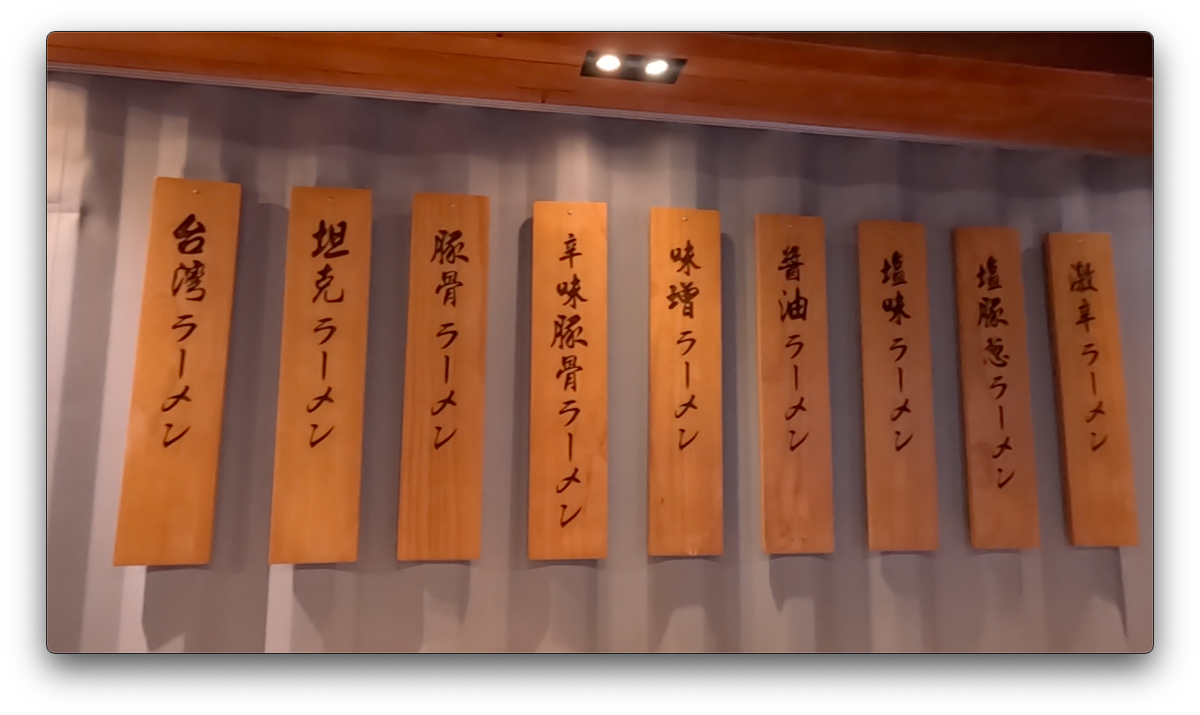 台湾ラーメン
坦克ラーメン
豚骨ラーメン
辛味豚骨ラーメン
味增ラーメン
醤油ラーメン
塩味ラーメン
塩豚葱ラーメン
激辛ラーメン